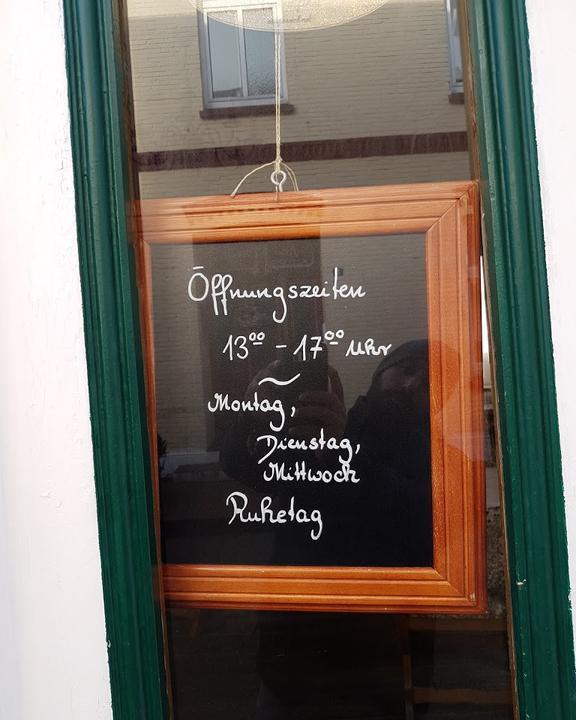 Öffnungszeiten
13⁰⁰ - 17⁰⁰ Uhr
Montag,
Dienstag,
Mittwoch
Ruhetag